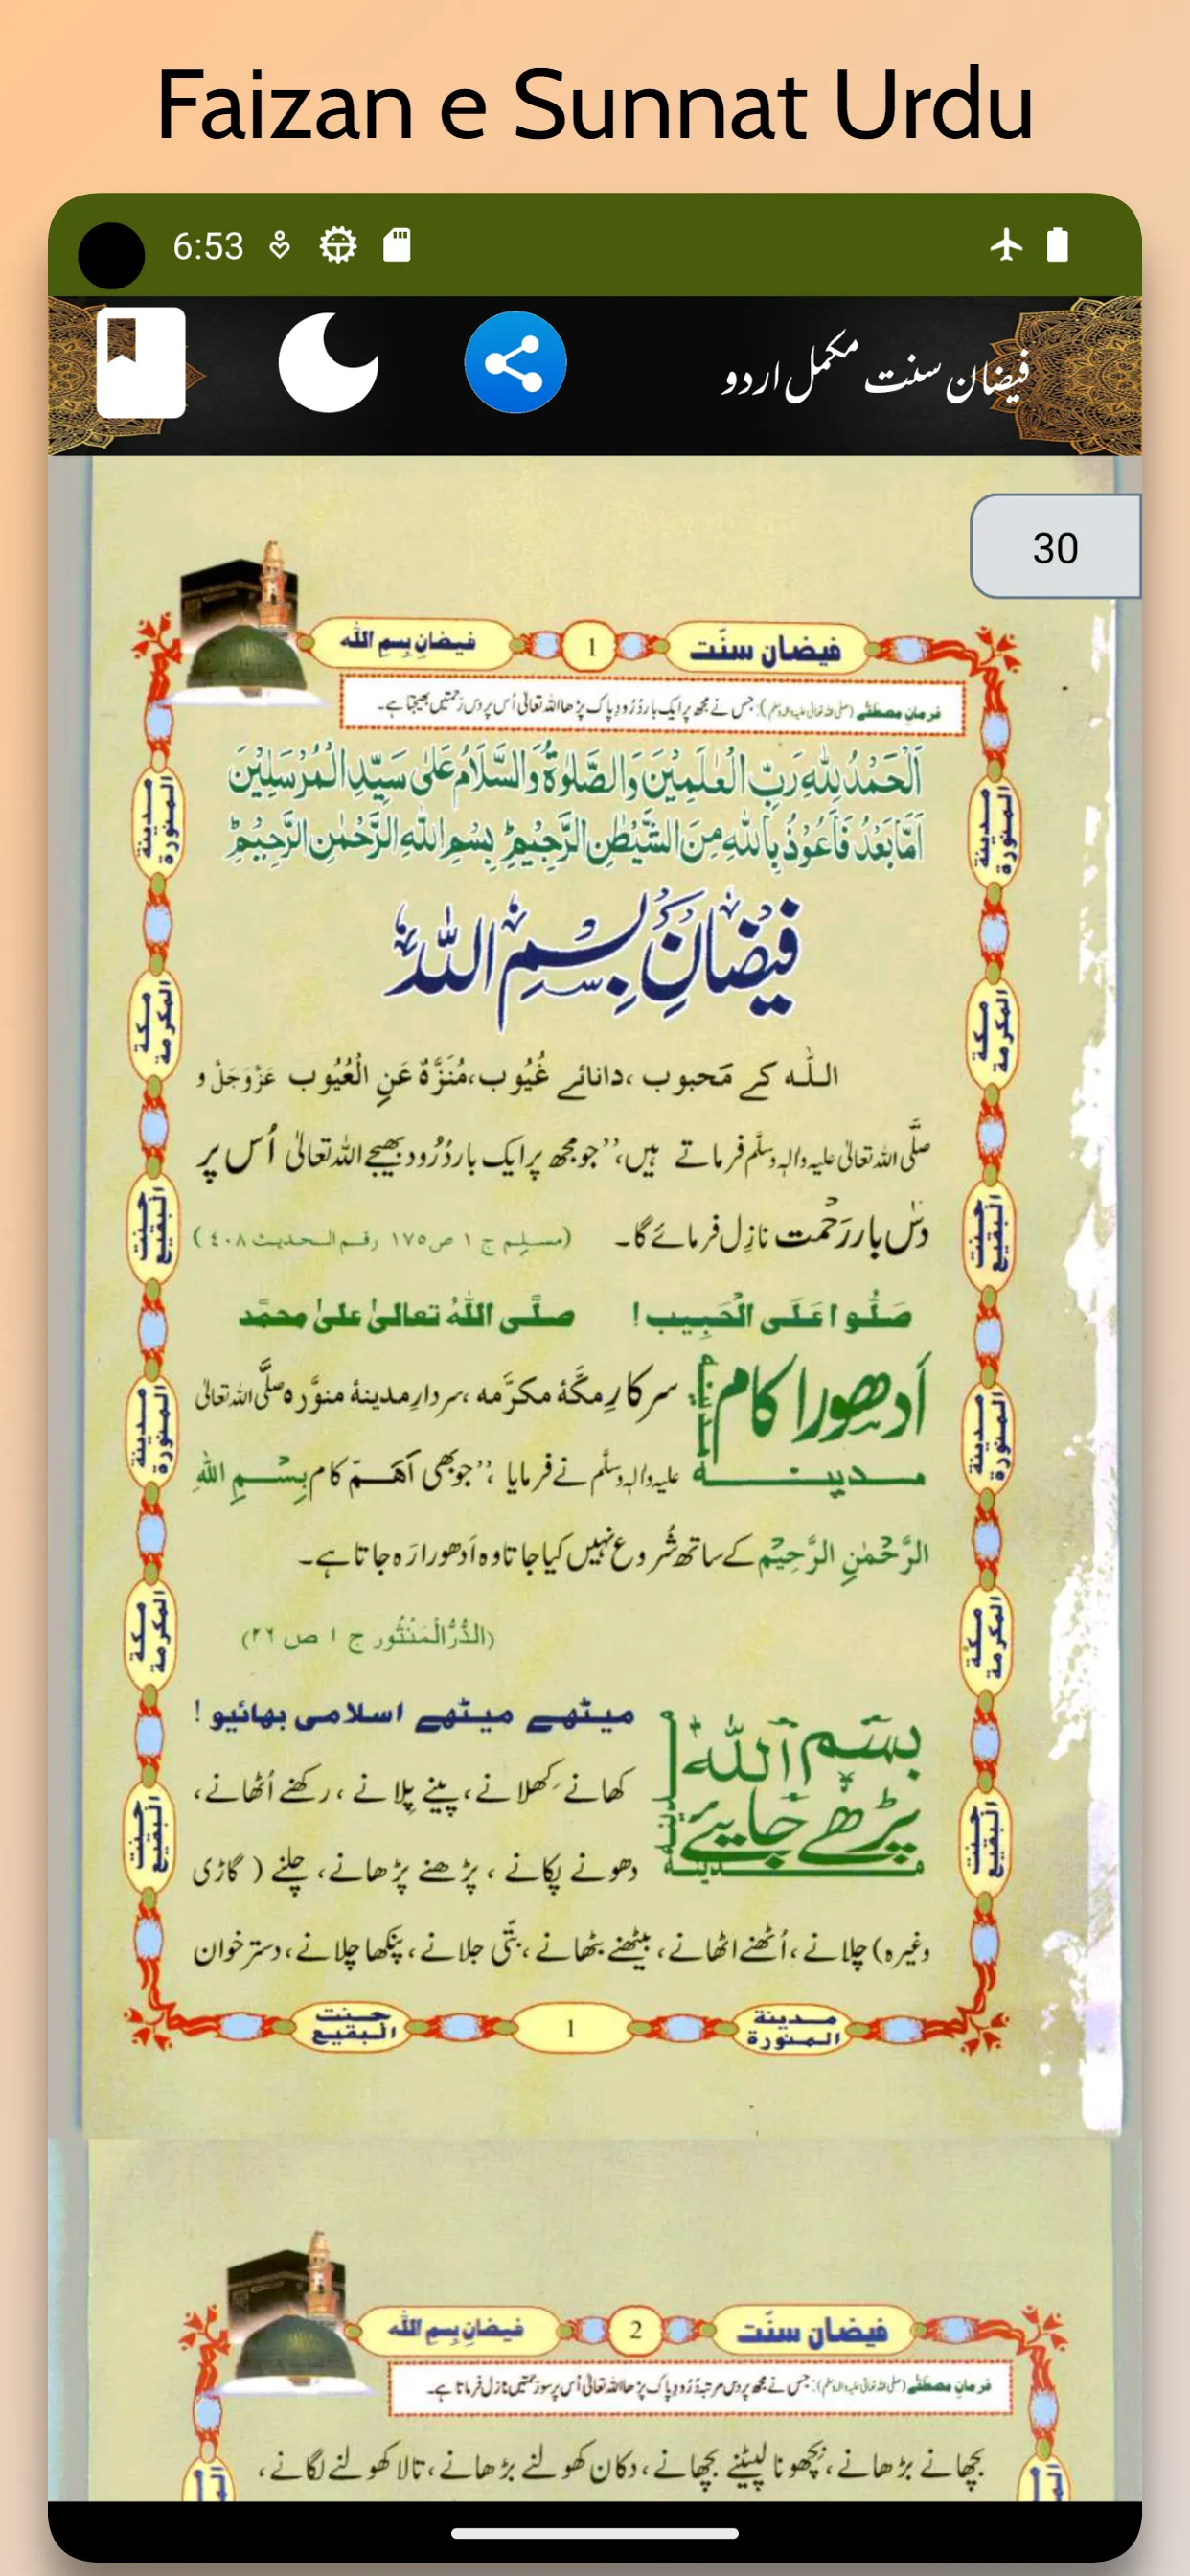 Faizan e Sunnat Urdu
6:53
فیضان سنت مکمل اردو
30
فیضان سنّت 1 فیضانِ بِسمِ اللّٰہ
فرمانِ مصطفٰے (صلی اللہ تعالیٰ علیہ والہ وسلم): جس نے مجھ پر ایک بار دُرُودِ پاک پڑھا اللہ تعالیٰ اُس پر دس رَحمتیں بھیجتا ہے۔
اَلْحَمْدُ لِلّٰہِ رَبِّ الْعٰلَمِیْنَ وَالصَّلٰوۃُ وَالسَّلَامُ عَلٰی سَیِّدِ الْمُرْسَلِیْنَ
اَمَّا بَعْدُ فَاَعُوْذُ بِاللّٰہِ مِنَ الشَّیْطٰنِ الرَّجِیْمِ بِسْمِ اللّٰہِ الرَّحْمٰنِ الرَّحِیْمِ
فیضانِ بِسْمِ اللّٰہ
اللّٰہ کے مَحبوب، دانائے غُیُوب، مُنَزَّہٌ عَنِ الْعُیُوب عَزَّوَجَلَّ و
صلَّی اللہ تعالیٰ علیہ واٰلہٖ وسلَّم فرماتے ہیں، ’’جو مجھ پر ایک بار دُرُود بھیجے اللہ تعالیٰ اُس پر
دس بار رَحْمت نازِل فرمائے گا۔ (مسلم ج ۱ ص ۱۷۵ رقم الحدیث ۴۰۸)
صَلُّوا عَلَی الْحَبِیب! صلَّی اللہُ تعالیٰ علیٰ محمَّد
اَدھورا کام
مدینہ
سرکارِ مکّۂ مکرَّمہ، سردارِ مدینۂ منوَّرہ صلَّی اللہ تعالیٰ
علیہ واٰلہٖ وسلَّم نے فرمایا، ’’جو بھی اَہَمّ کام بِسْمِ اللّٰہِ
الرَّحْمٰنِ الرَّحِیْمِ کے ساتھ شُروع نہیں کیا جاتا وہ اَدھورا رَہ جاتا ہے۔
(الدُّرُّالْمَنْثُور ج ۱ ص ۲۶)
بِسْمِ اللّٰہ
پڑھے جایئے
میٹھے میٹھے اسلامی بھائیو!
کھانے کھلانے، پینے پلانے، رکھنے اُٹھانے،
دھونے پکانے، پڑھنے پڑھانے، چلنے (گاڑی
وغیرہ) چلانے، اُٹھنے اٹھانے، بیٹھنے بٹھانے، بتّی جلانے، پنکھا چلانے، دسترخوان
مدینة المنورة
مكة المكرمة
جنت البقيع
مدینة المنورة
مكة المكرمة
جنت البقيع
مدینة المنورة
مكة المكرمة
جنت البقيع
مدینة المنورة
مكة المكرمة
جنت البقيع
مدینة المنورة 1 جنت البقيع
فیضان سنّت 2 فیضانِ بِسمِ اللّٰہ
فرمانِ مصطفٰے (صلی اللہ تعالیٰ علیہ والہ وسلم): جس نے مجھ پر دس مرتبہ دُرُودِ پاک پڑھا اللہ تعالیٰ اُس پر سو رَحمتیں نازل فرماتا ہے۔
بچھانے بڑھانے، بچھونا لپیٹنے بچھانے، دکان کھولنے بڑھانے، تالا کھولنے لگانے،